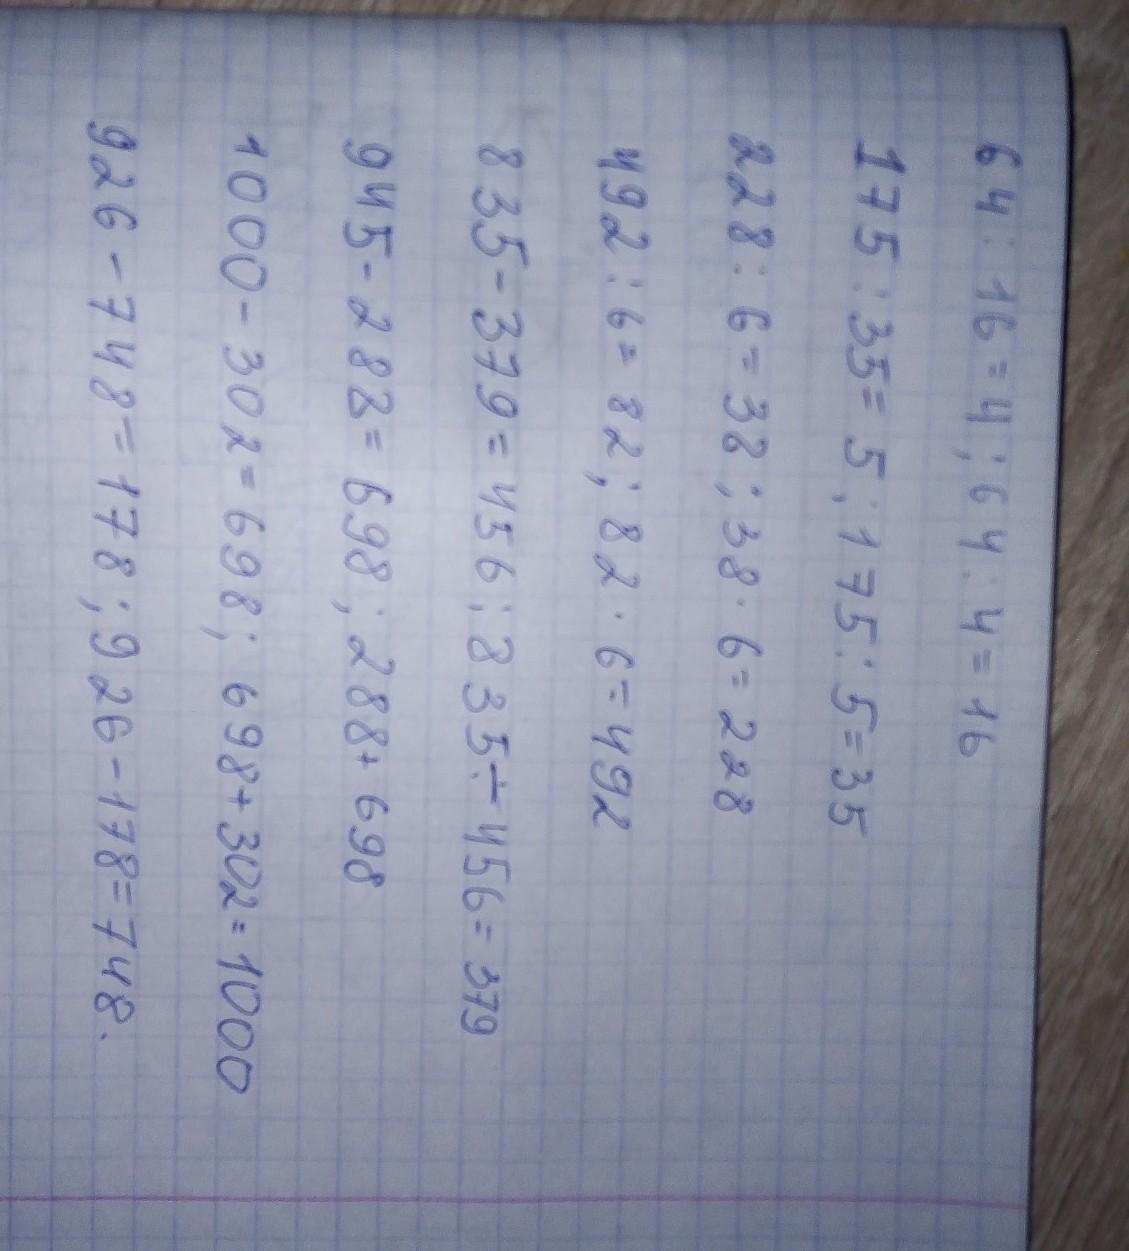 64 : 16 = 4; 64 : 4 = 16
175 : 35 = 5; 175 : 5 = 35
228 : 6 = 38; 38 · 6 = 228
492 : 6 = 82; 82 · 6 = 492
835 - 379 = 456; 835 - 456 = 379
945 - 288 = 698; 288 + 698
1000 - 302 = 698; 698 + 302 = 1000
926 - 748 = 178; 926 - 178 = 748.